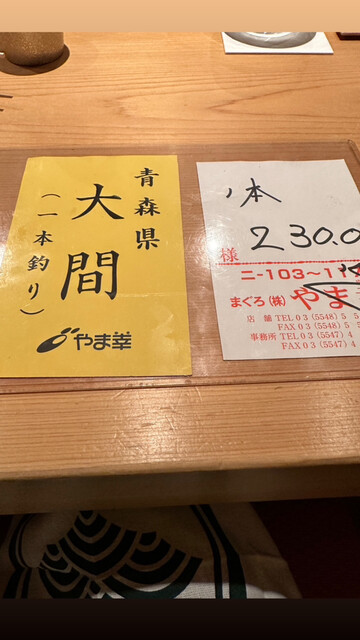 青森県
大間
(一本釣り)
やま幸
1本
230.0
様
ニ-103~1
まぐろ(株)やま
店 舗 TEL 03 (5548) 5
FAX 03 (5548) 5
事務所 TEL 03 (5547) 4
FAX 03 (5547) 4